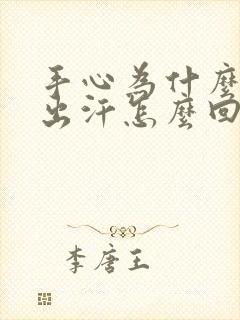 手心为什麼
出汗怎麼回
李唐王